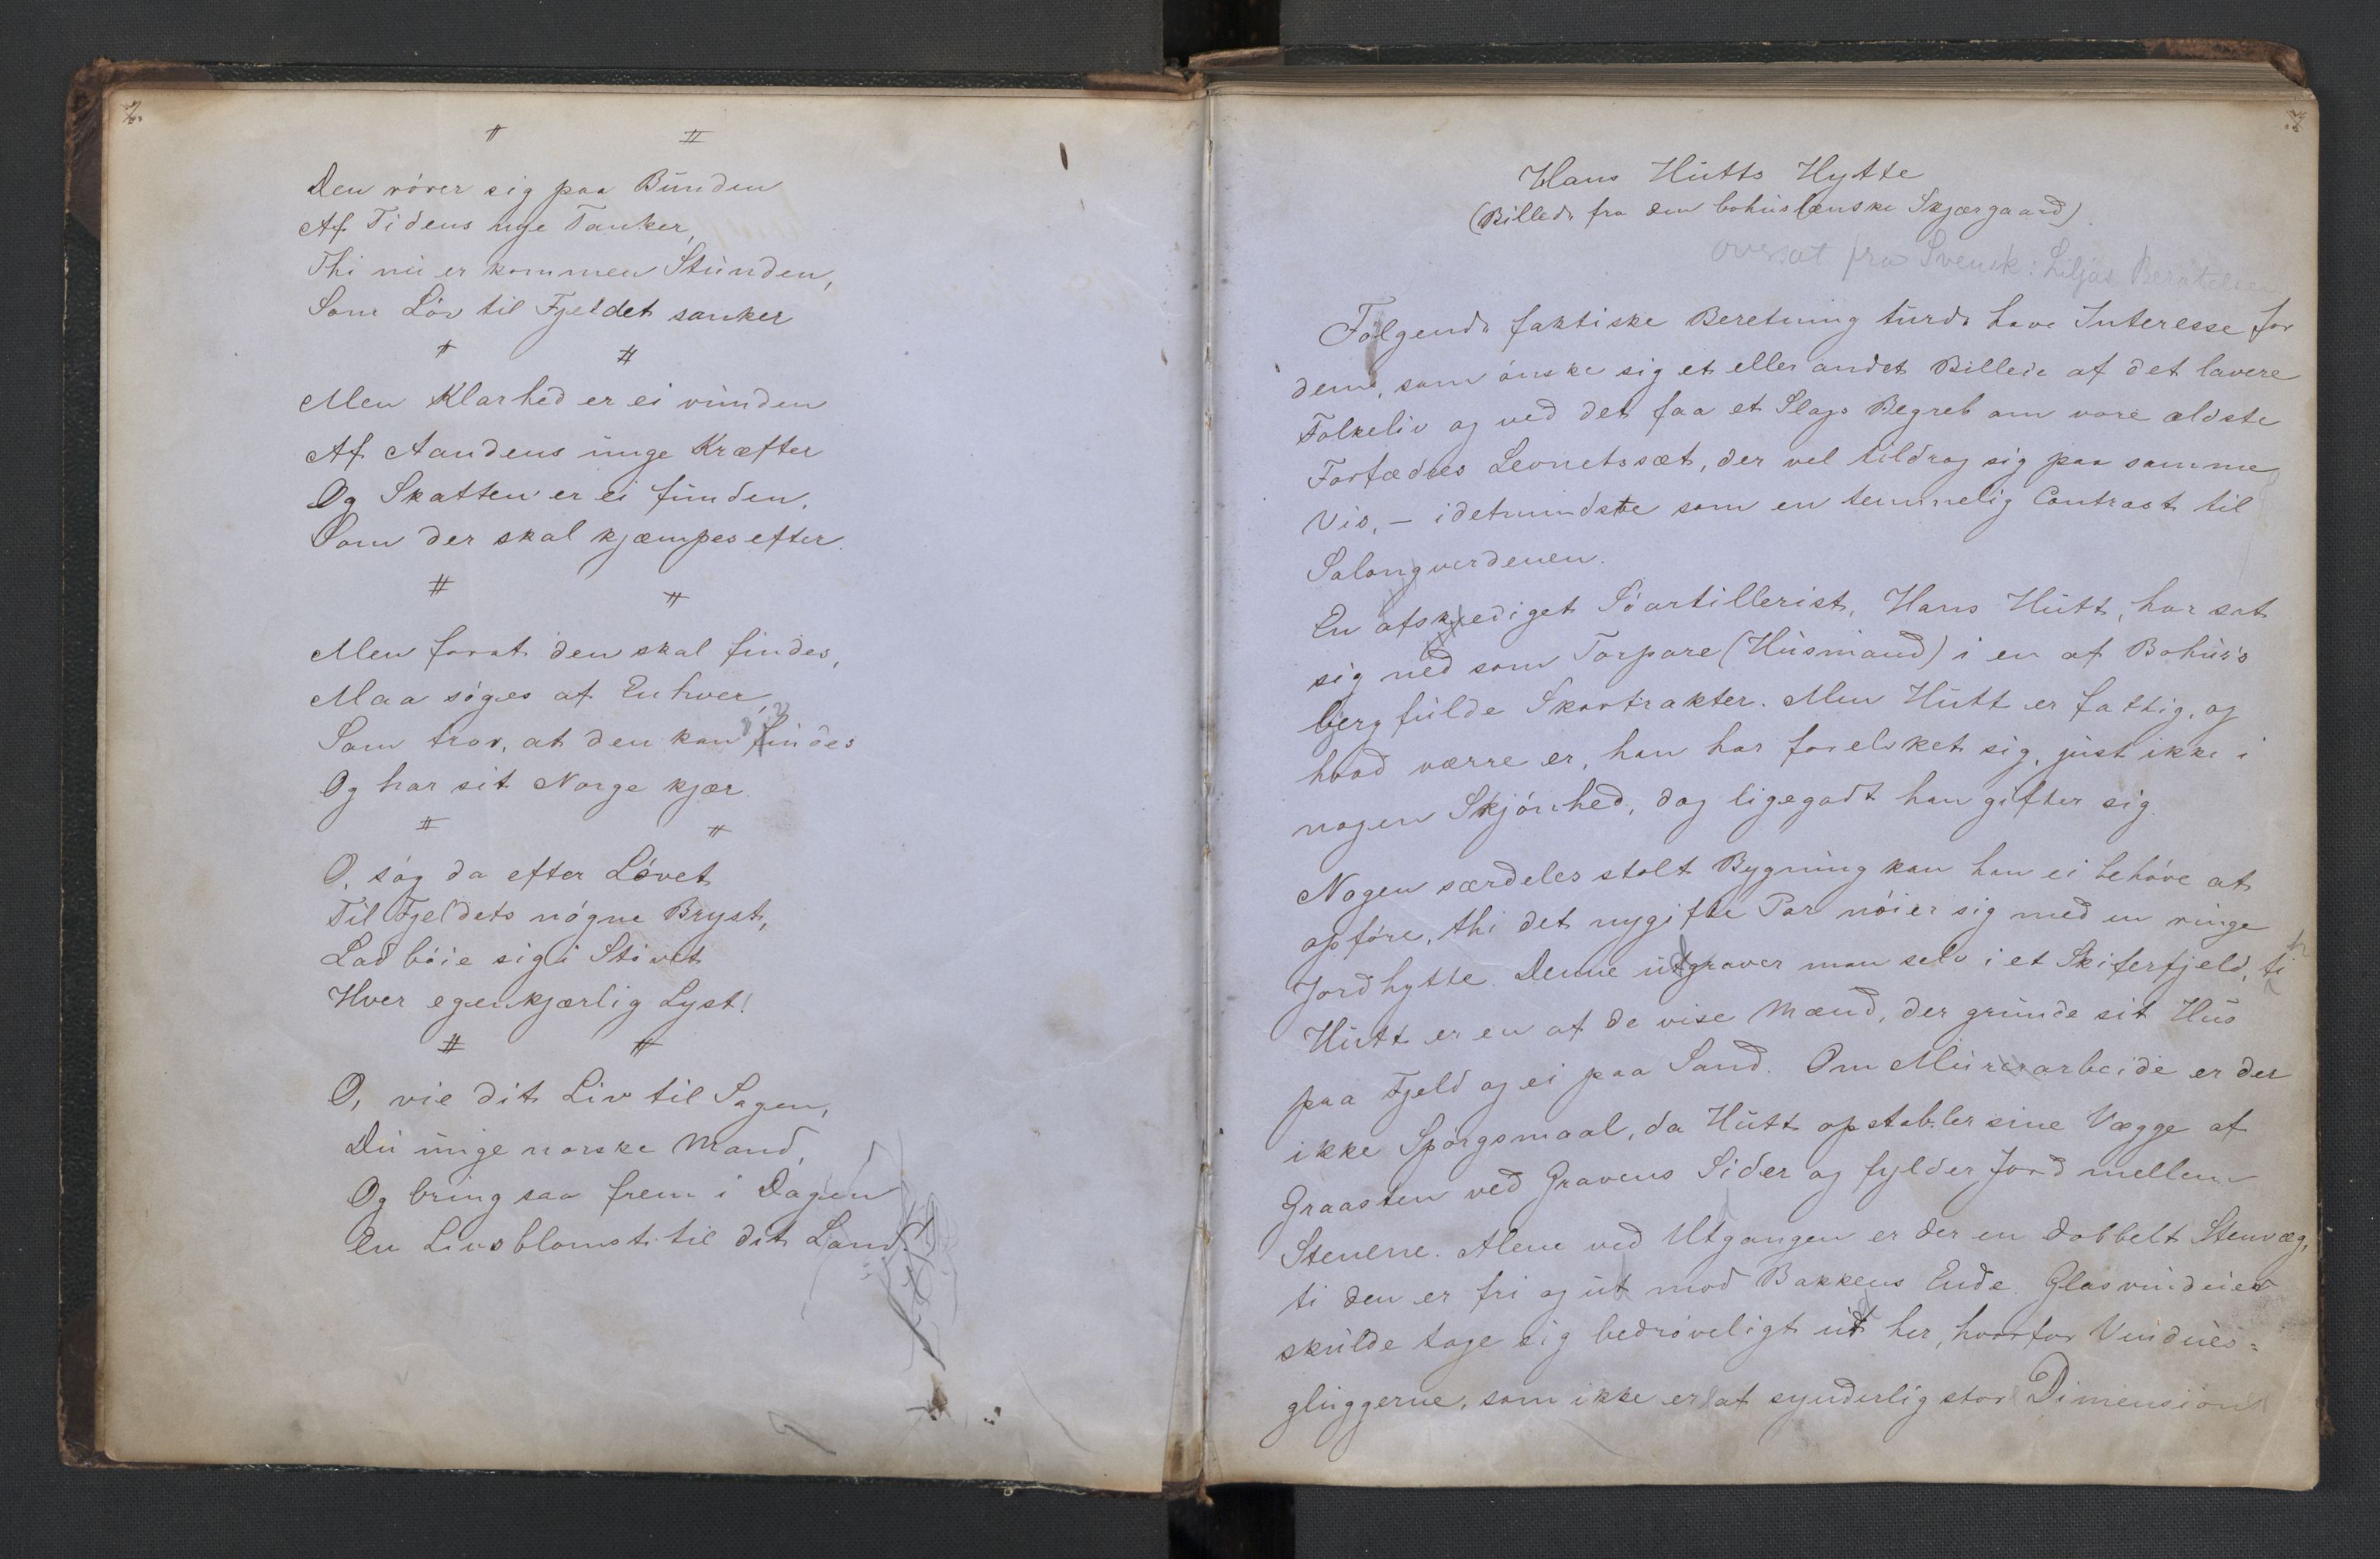 2.
# #
Den rörer sig paa Bunden
Af Tidens nye Tanker,
Thi nu er kommen Stunden,
Som Löv til Fjeldet sanker
# #
Men Klarhed er ei vunden
Af Aandens unge Kræfter
Og Skatten er ei funden,
Som der skal kjæmpes efter.
# #
Men forat den skal findes,
Maa söges af Enhver,
Som tror, at den kan findes
Og har sit Norge kjær.
# #
O, sög da efter Lövet
Til Fjeldets nögne Bryst,
Lad böie sig i Stövet
Hver egenkjærlig Lyst!
# #
O, vie dit Liv til Sagen,
Du unge norske Mand,
Og bring saa frem i Dagen
En Livsblomst til dit Land.
3.
Hans Hutts Hytte
(Billede fra den bohuslenske Skjærgaard).
oversat fra Svensk: Liljas Berätelser
Fölgende faktiske Beretning turde have Interesse for
dem, som önske sig et eller andet Billede af det lavere
Folkeliv og ved det faa et Slags Begreb om vore ældste
Forfædres Levnetssæt, der vel tildrog sig paa samme
Vis, – idetmindste som en temmelig Contrast til
Salongverdenen.
En afskediget Söartillerist, Hans Hutt, har sat
sig ned som Torpare (Husmand) i en af Bohus's
bergfulde Skovtrakter. Men Hutt er fattig, og
hvad værre er, han har forelsket sig, just ikke i
nogen Skjönhed, dog ligegodt han gifter sig.
Nogen særdeles stolt Bygning kan han ei behöve at
opföre, thi det nygifte Par nöier sig med en ringe
Jordhytte. Denne udgraver man selv i et Skiferfjeld, thi
Hutt er en af de vise Mænd, der grunde sit Hus
paa Fjeld og ei paa Sand. Om Murerarbeide er der
ikke Spörgsmaal, da Hutt opstabler sine Vægge af
Graasten ved Gravens Sider og fylder Jord mellem
Stenene. Alene ved Utgangen er der en dobbelt Stenvæg,
ti den er fri og ut mod Bakkens Ende. Glasvinduer
skulde tage sig bedröveligt ud her, hvorfor Vindues-
gluggerne, som ikke er at synderlig stor Dimension